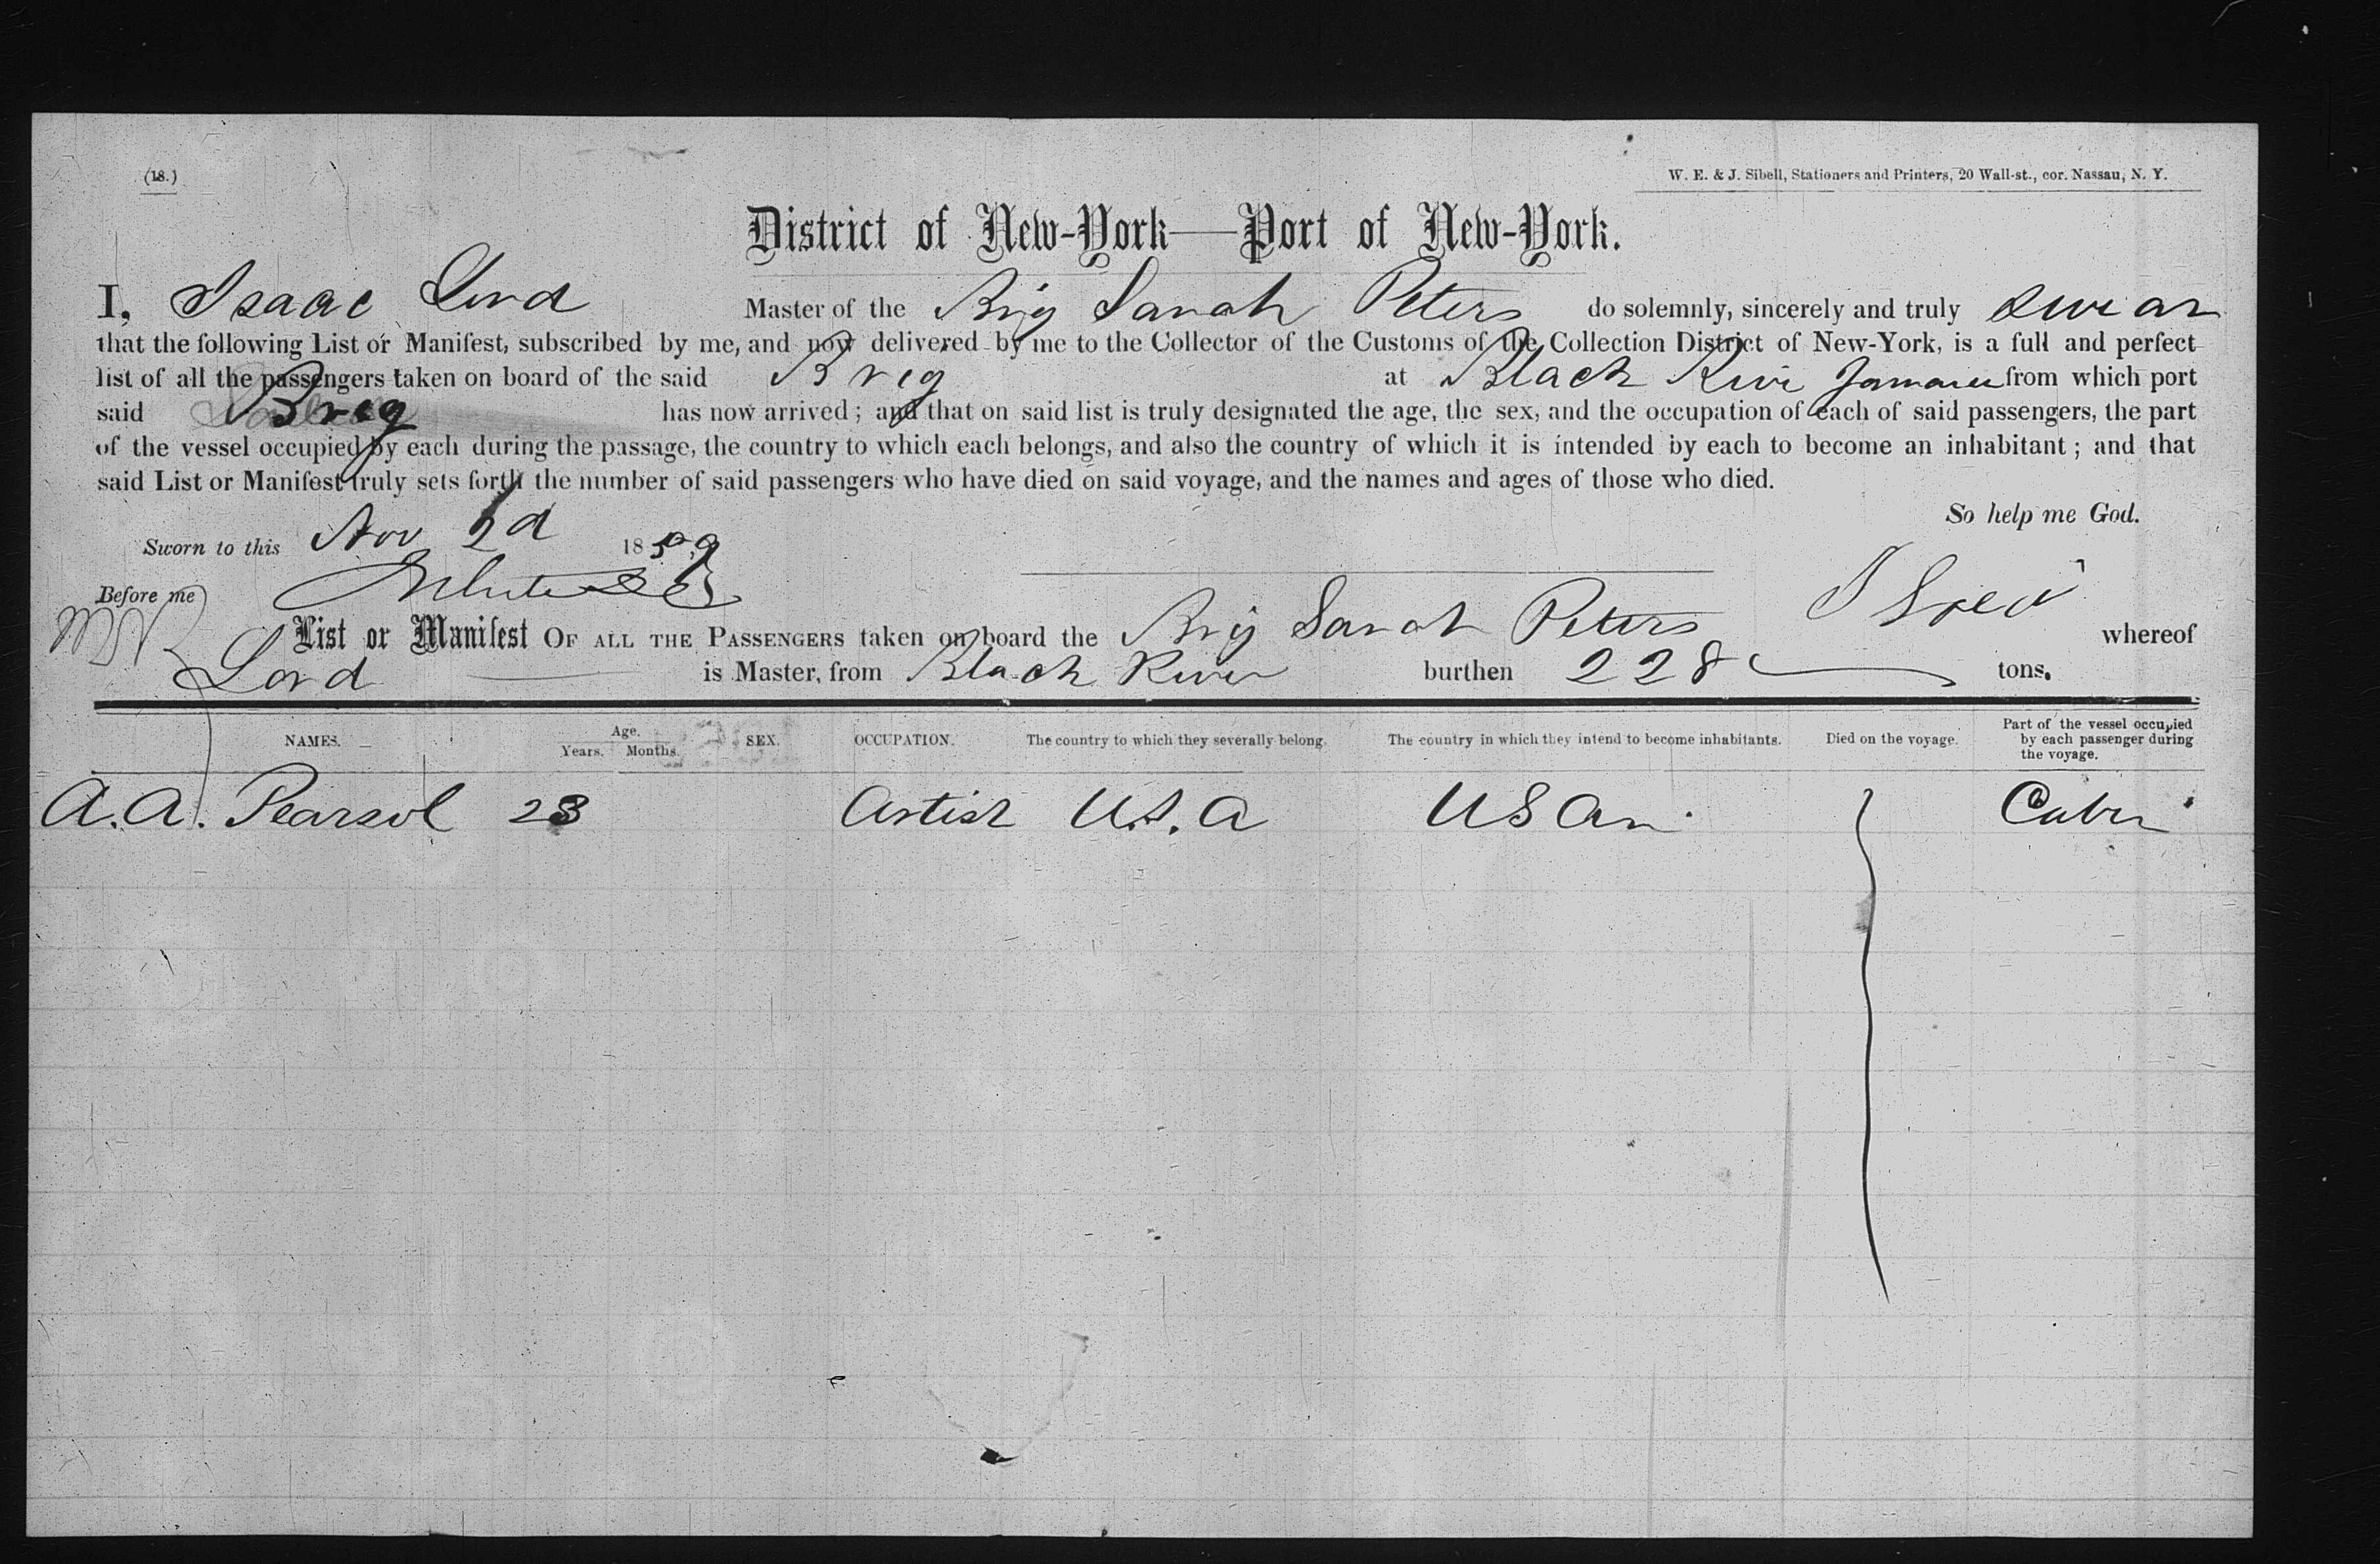 (18.)
W. E. & J. Sibell, Stationers and Printers, 20 Wall-st., cor. Nassau, N. Y.
District of New-York—Port of New-York.
I, Isaac Lord Master of the Brig Sarah Peters do solemnly, sincerely and truly swear
that the following List or Manifest, subscribed by me, and now delivered by me to the Collector of the Customs of the Collection District of New-York, is a full and perfect
list of all the passengers taken on board of the said Brig at Black River Jamaica from which port
said Brig has now arrived; and that on said list is truly designated the age, the sex, and the occupation of each of said passengers, the part
of the vessel occupied by each during the passage, the country to which each belongs, and also the country of which it is intended by each to become an inhabitant; and that
said List or Manifest truly sets forth the number of said passengers who have died on said voyage, and the names and ages of those who died.
So help me God.
Sworn to this Nov 2d 1859
Before me
List or Manifest OF ALL THE PASSENGERS taken on board the Brig Sarah Peters whereof
Lord is Master, from Black River burthen 228 tons.
NAMES. Age. Years. Months. SEX. OCCUPATION. The country to which they severally belong. The country in which they intend to become inhabitants. Died on the voyage. Part of the vessel occupied by each passenger during the voyage.
A. A. Pearsol 23 Artist U.S.A U S Am. Cabin